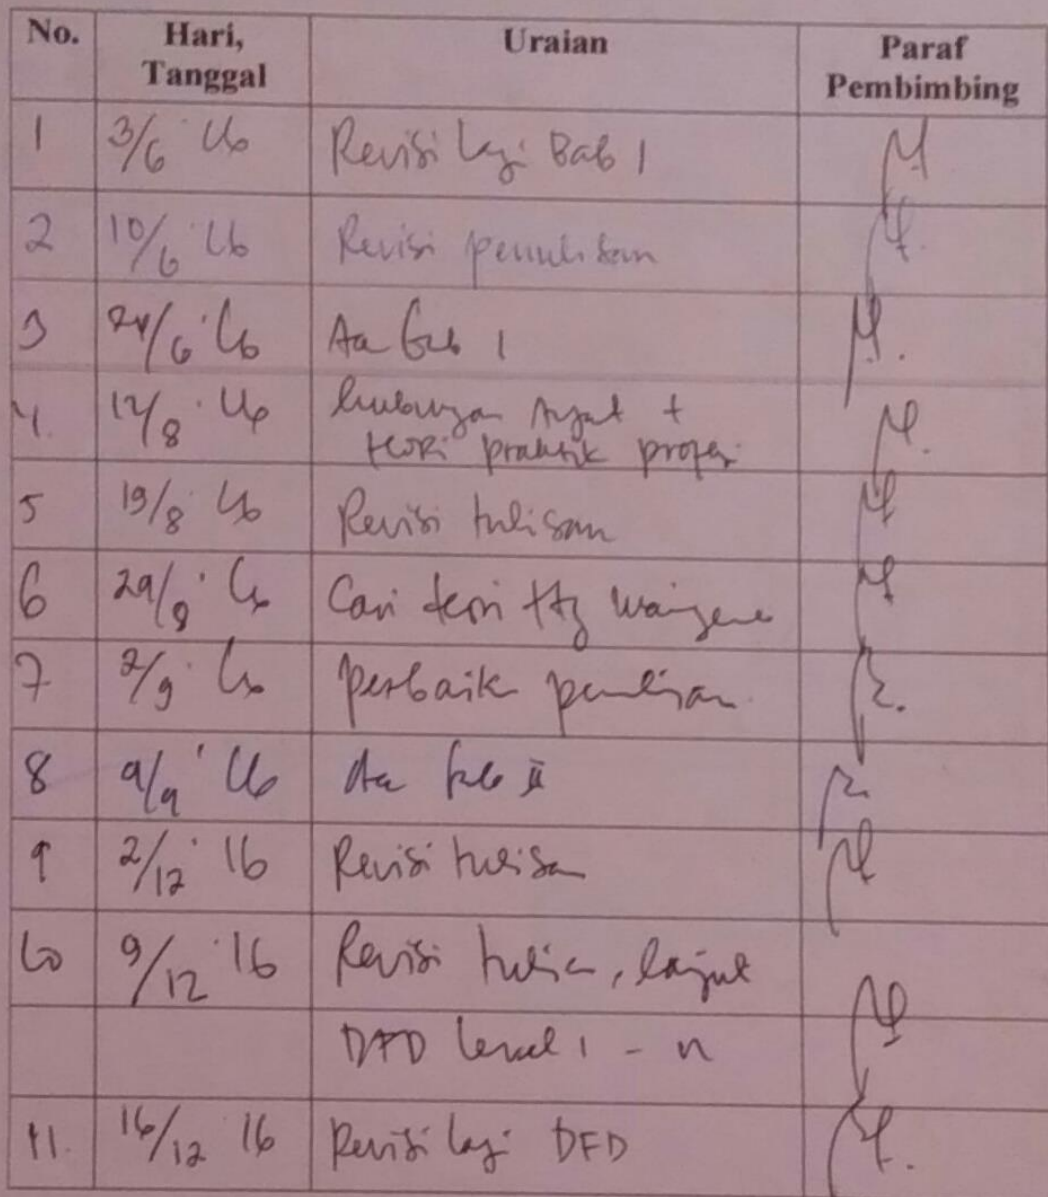 No. Hari, Tanggal Uraian Paraf Pembimbing
1 3/6 '16 Revisi lagi Bab 1
2 10/6 '16 Revisi penulisan
3 24/6 '16 Acc Bab 1
4. 12/8 '16 hubungan +
teori praktik profesi
5 19/8 '16 Revisi tulisan
6 29/8 '16 Cari teori ttg
7 2/9 '16 perbaik penulisan
8 9/9 '16 Acc bab II
9 2/12 '16 Revisi tulisan
10 9/12 '16 Revisi tulisan, lanjut
DFD level 1 - n
11. 16/12 16 Revisi lagi DFD